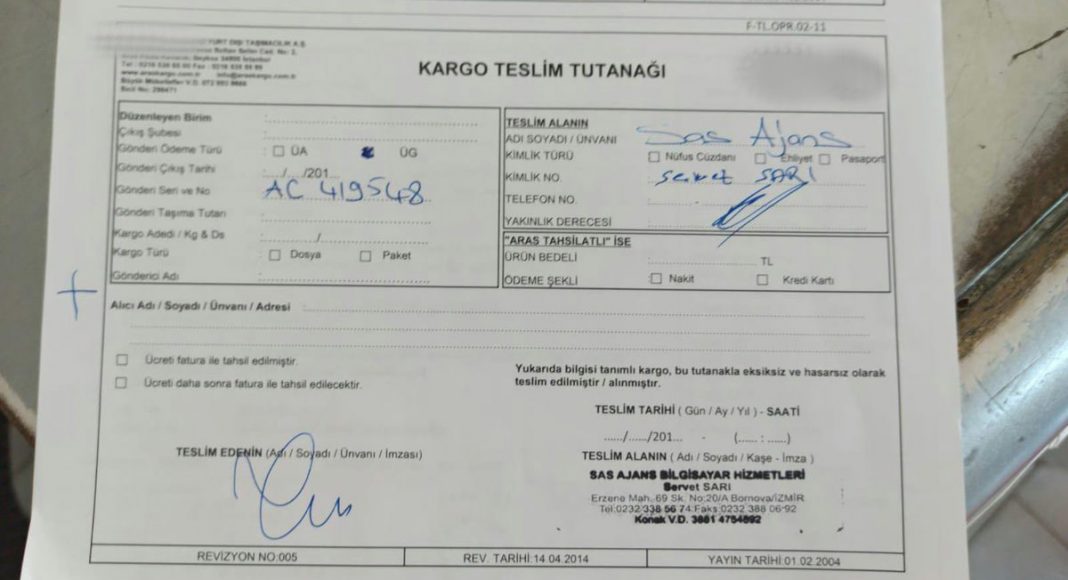 F-TL.OPR.02-11
YURT DIŞI TAŞIMACILIK A.Ş.
KARGO TESLİM TUTANAĞI
Düzenleyen Birim
Çıkış Şubesi
Gönderi Ödeme Türü : ÜA ÜG
Gönderi Çıkış Tarihi ..../..../201...
Gönderi Seri ve No AC 419548
Gönderi Taşıma Tutarı
Kargo Adedi / Kg & Ds /
Kargo Türü Dosya Paket
Gönderici Adı
TESLİM ALANIN
ADI SOYADI / ÜNVANI Sas Ajans
KİMLİK TÜRÜ Nüfus Cüzdanı Ehliyet Pasaport
KİMLİK NO. Servet SARI
TELEFON NO.
YAKINLIK DERECESİ
"ARAS TAHSİLATLI" İSE
ÜRÜN BEDELİ TL
ÖDEME ŞEKLİ Nakit Kredi Kartı
Alıcı Adı / Soyadı / Ünvanı / Adresi
Ücreti fatura ile tahsil edilmiştir.
Ücreti daha sonra fatura ile tahsil edilecektir.
Yukarıda bilgisi tanımlı kargo, bu tutanakla eksiksiz ve hasarsız olarak
teslim edilmiştir / alınmıştır.
TESLİM TARİHİ ( Gün / Ay / Yıl ) - SAATİ
....../....../201... - (...... : ......)
TESLİM EDENİN (Adı / Soyadı / Ünvanı / İmzası)
TESLİM ALANIN ( Adı / Soyadı / Kaşe - İmza )
SAS AJANS BİLGİSAYAR HİZMETLERİ
Servet SARI
Erzene Mah. 69 Sk. No:20/A Bornova/İZMİR
Tel:0232 338 56 74 Faks:0232 388 06-92
Konak V.D. 3881 4754892
REVİZYON NO:005
REV. TARİHİ:14.04.2014
YAYIN TARİHİ:01.02.2004